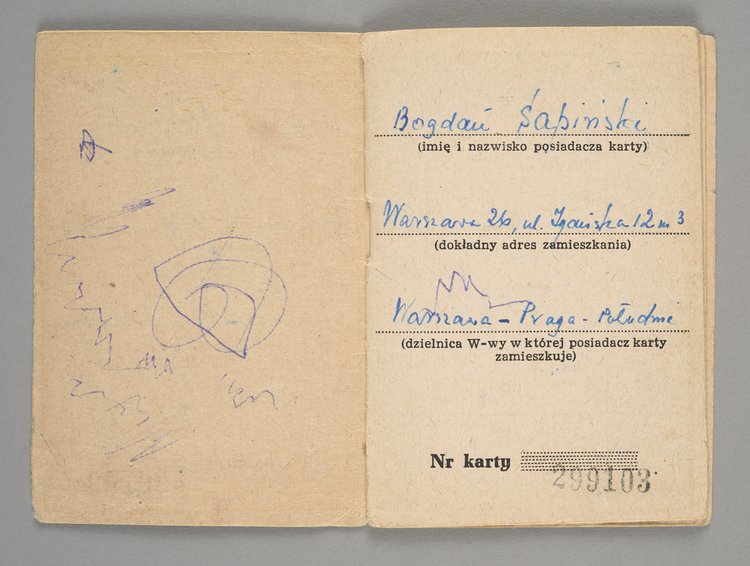 Bogdan Sapiński
(imię i nazwisko posiadacza karty)
Warszawa 26, ul. Igańska 12 m 3
(dokładny adres zamieszkania)
Warszawa - Praga - Południe
(dzielnica W-wy w której posiadacz karty
zamieszkuje)
Nr karty
299103